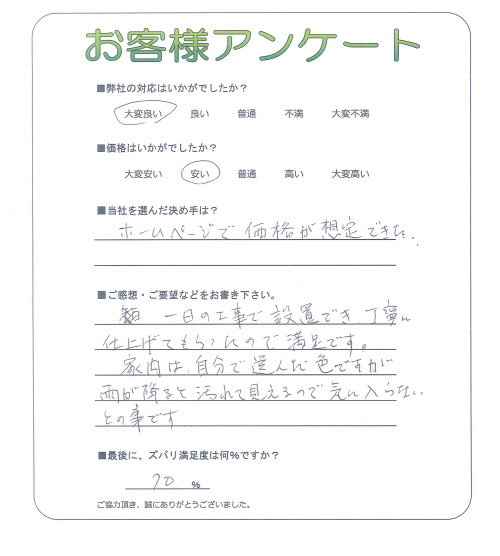 お客様アンケート
■弊社の対応はいかがでしたか？
大変良い 良い 普通 不満 大変不満
■価格はいかがでしたか？
大変安い 安い 普通 高い 大変高い
■当社を選んだ決め手は？
ホームページで価格が想定できた.
■ご感想・ご要望などをお書き下さい。
一日の工事で設置でき丁寧に
仕上げてもらったので満足です。
家内は、自分で選んだ色ですが
雨が降ると汚れて見えるので気に入らない
との事です
■最後に、ズバリ満足度は何%ですか？
70 %
ご協力頂き、誠にありがとうございました。